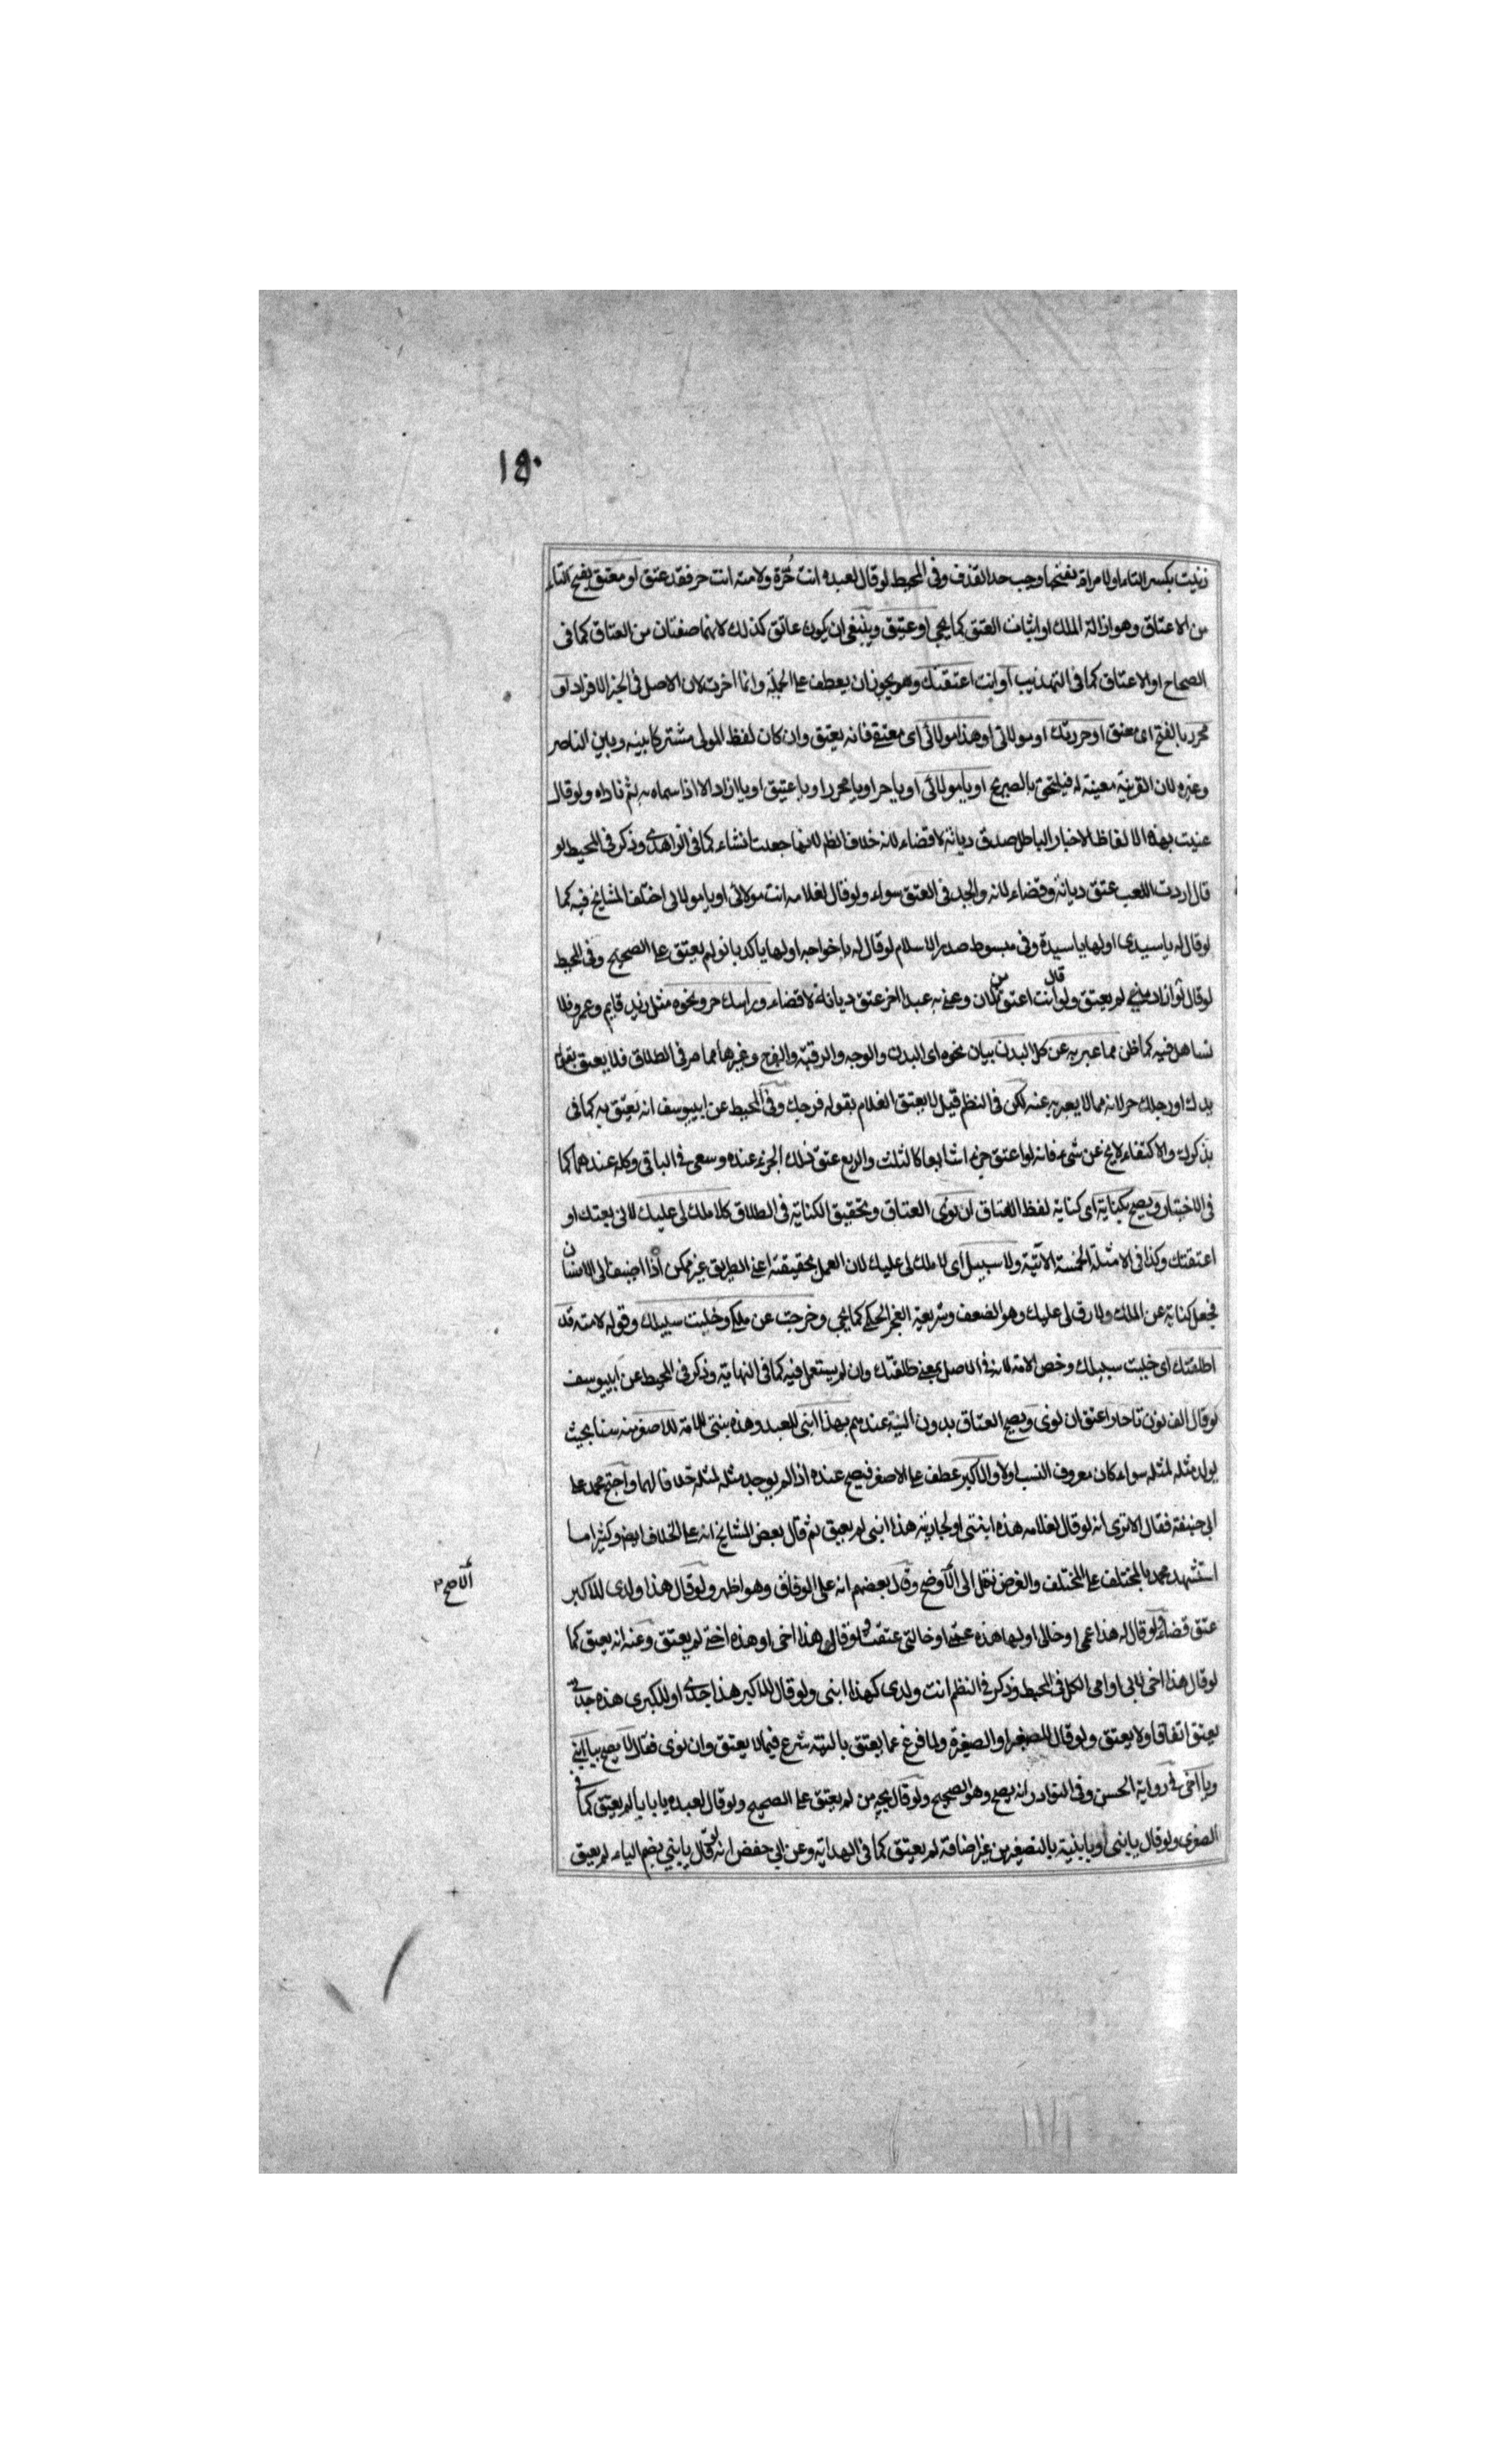 ١٥٠
زنيت بكسر التاء او لامراة بفتحها وجب حد القذف وفى المحيط لو قال لعبده انت حُرّة ولامته انت حر فقد عتق او معتق بفتح التاء
من الاعتاق وهو ازالة الملك او اثبات العتق كما يجي او عتيق وينبغى ان يكون عاتق كذلك لانهما صفتان من العتاق كما فى
الصحاح او الاعتاق كما فى التهذيب او انت اعتقتك وهو يجوز ان يعطف على الجملة وانما اخرت لان الاصل فى الخبر الافراد او
محرر بالفتح اى معتق او حررتك او مولائى او هذا مولائى اى معتقى فانه يعتق وان كان لفظ المولى مشتركا بينه وبين الناصر
وغيره لان القرينة معينة له فيلتحق بالصريح او يا مولائى او يا حر او يا محرر او يا عتيق او يا ازاد الا اذا سماه به ثم ناداه ولو قال
عنيت بهذه الالفاظ الاخبار الباطل صدق ديانة لا قضاء لانه خلاف الظم لانها جعلت انشاء كما فى الزاهدى وذكر فى المحيط لو
قال اردت اللعب عتق ديانة وقضاء لانه والجد فى العتق سواء ولو قال لغلامه انت مولائى او يا مولائى اختلف المشايخ فيه كما
لو قال له يا سيدى او لها يا سيدة وفى مبسوط صدر الاسلام لو قال له يا خواجه او لها يا كدبانو لم يعتق على الصحيح وفى المحيط
لو قال تو ازاد منى لم يعتق ولو قال انت اعتق من فلان وعنى به عبدا اخر عتق ديانة لا قضاء وراسك حر ونحوه مثل زيد قايم وعمرو فلا
تساهل فيه كما ظن مما عبر به عن كل البدن بيان نحوه اى البدن والوجه والرقبة والفرج وغيرها مما مر فى الطلاق فلا يعتق بقوله
يدك او رجلك حر لانه مما لا يعبر به عنه لكن فى النظم قيل لا يعتق الغلام بقوله فرجك وفى المحيط عن ابييوسف انه يعتق به كما فى
بذكرك والاكتفاء لا يخ عن شىء فانه لو اعتق جزءا شايعا كالثلث والربع عتق ذلك الجزء عنده وسعى فى الباقى وكله عندهما كما
فى الاختيار ويصح بكناية اى كناية لفظ العتاق ان نوى العتاق وتحقيق الكناية فى الطلاق كلا ملك لى عليك لانى بعتك او
اعتقتك وكذا فى الامثلة الخمسة الآتية ولا سبيل اى لا ملك لى عليك لان العمل بحقيقته اعنى الطريق غير ممكن اذا اضيف الى الانسان
فجعل كناية عن الملك ولا رق لى عليك وهو الضعف وشريعة العجز الحكمى كما يجي وخرجت عن ملكى وخليت سبيلك وقوله لامته قد
اطلقتك اى خليت سبيلك وخص الامة لانه فى الاصل بمعنى طلقتك وان لم يستعمل فيه كما فى النهاية وذكر فى المحيط عن ابييوسف
لو قال الف نون تا حا را عتق ان نوى ويصح العتاق بدون النية عندهم بهذا ابنى للعبد وهذه بنتى للامة للاصغر منه سنا بحيث
يولد مثله لمثله سواء كان معروف النسب اولا والاكبر عطف على الاصغر فيصح عنده اذا لم يوجد مثله لمثله خلافا لهما واحتج محمد على
ابى حنيفة فقال الا ترى انه لو قال لغلامه هذه ابنتى او لجاريته هذا ابنى لم يعتق ثم قال بعض المشايخ انه على الخلاف ايض وكثيرا ما
استشهد محمد بالمختلف على المختلف والغرض نقل الى الاوضح وقال بعضهم انه على الوفاق وهو اظهر ولو قال هذا ولدى للاكبر
الاصح
عتق قضاء ولو قال له هذا عمى او خالى او لها هذه عمتى او خالتى عتقت ولو قال هذا اخى او هذه اختى لم يعتق وعنه انه يعتق كما
لو قال هذا اخى لابى او امى الكل فى المحيط وذكر فى النظم انت ولدى كهذا ابنى ولو قال للاكبر هذا جدى او للكبرى هذه جدتى
يعتق اتفاقا ولا يعتق ولو قال للصغير او الصغيرة ولما فرغ عما يعتق بالنية شرع فيما لا يعتق وان نوى فقال لا يصح بيا ابنى
ويا اخى فى رواية الحسن وفى النوادر انه يصح وهو الصحيح ولو قال بجه من لم يعتق على الصحيح ولو قال لعبده يا بابا لم يعتق كما فى
الصغرى ولو قال يا بنى او يا بنية بالتصغير من غير اضافة لم يعتق كما فى الهداية وعن ابى حفص انه لو قال يا بنى بضم الياء لم يعتق